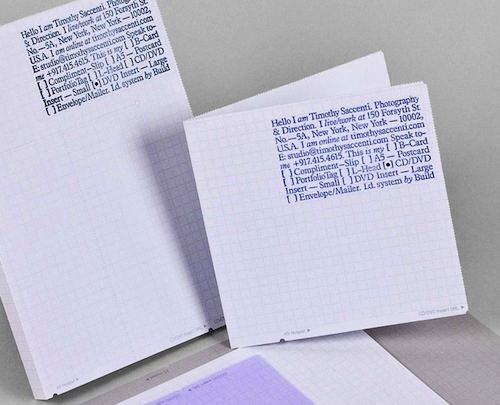 Hello I am Timothy Saccenti. Photography
& Direction. I live/work at 150 Forsyth St
No.—5A, New York, New York — 10002,
U.S.A. I am online at timothysaccenti.com
E: studio@timothysaccenti.com Speak to-
me +917.415.4615. This is my [ ] B-Card
[ ] Compliment—Slip [ ] A5 — Postcard
[ ] PortfolioTag [ ] L—Head [ ] CD/DVD
Insert — Small [•] DVD Insert — Large
[ ] Envelope/Mailer. I.d. system by Build
Hello I am Timothy Saccenti. Photography
& Direction. I live/work at 150 Forsyth St
No.—5A, New York, New York — 10002,
U.S.A. I am online at timothysaccenti.com
E: studio@timothysaccenti.com Speak to-
me +917.415.4615. This is my [ ] B-Card
[ ] Compliment—Slip [ ] A5 — Postcard
[ ] PortfolioTag [ ] L—Head [•] CD/DVD
Insert — Small [ ] DVD Insert — Large
[ ] Envelope/Mailer. I.d. system by Build